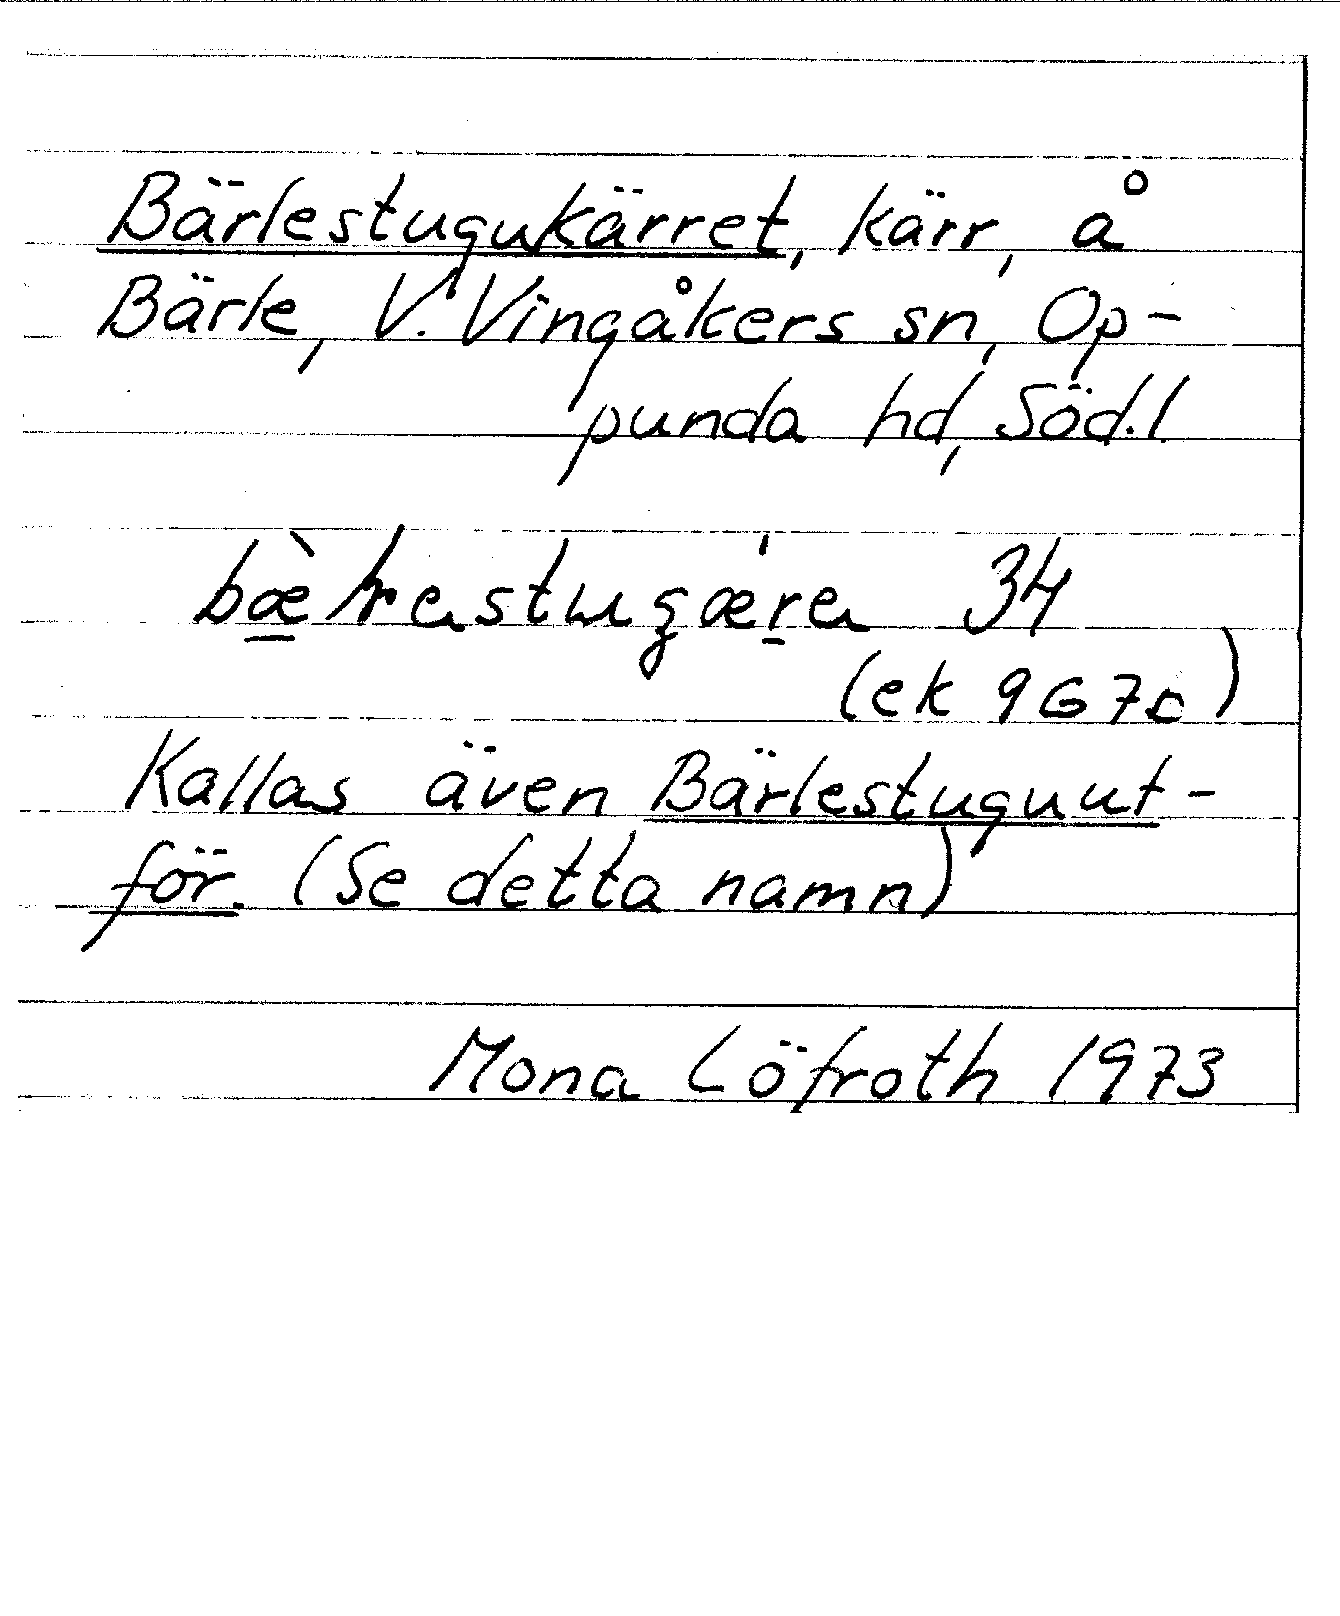 Bärlestugukärret, kärr, å
Bärle, V. Vingåkers sn, Op-
punda hd, Söd.l
34
(ek 9G7c)
Kallas även Bärlestuguut-
för. (Se detta namn)
Mona Löfroth 1973